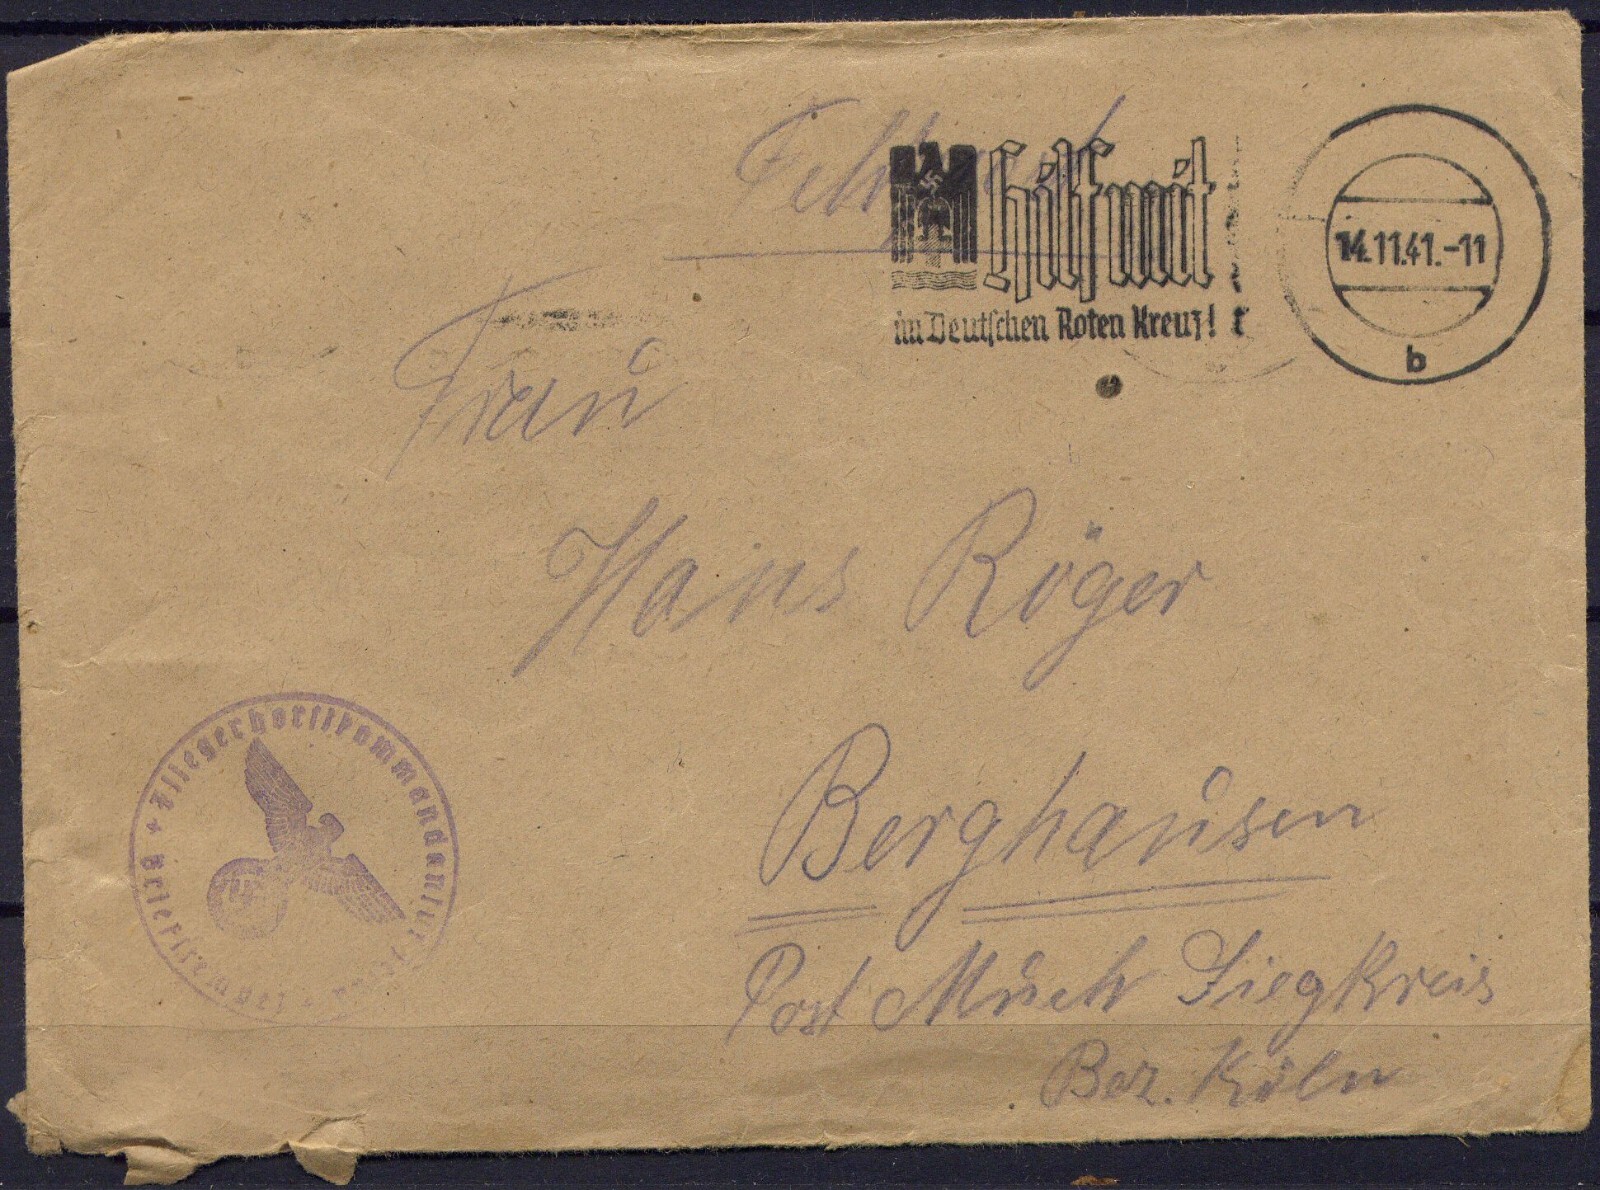 Feldpost
hilf mit
im Deutschen Roten Kreuz!
14.11.41.-11
b
Frau
Hans Röger
Berghausen
Post Much Siegkreis
Bez. Köln
Fliegerhorstkommandantur
Briefstempel